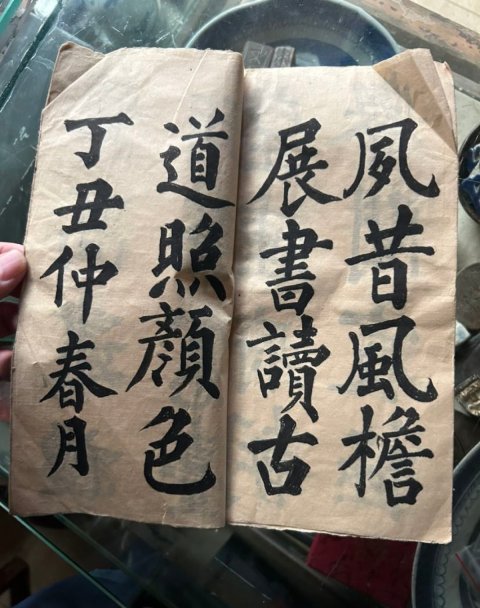 夙昔風檐
展書讀古
道照顏色
丁丑仲春月